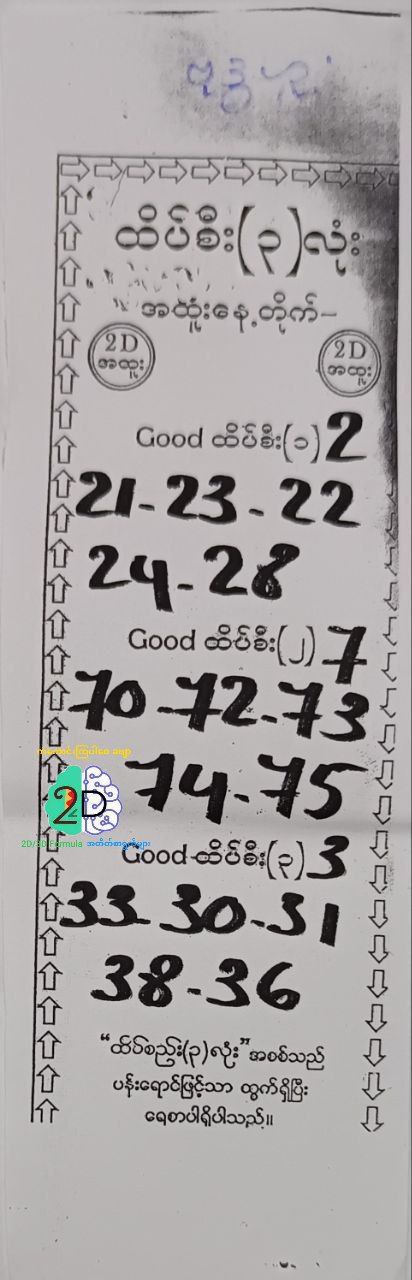 ထိပ်စီး(၃)လုံး
အထူးနေ့တိုက်-
2D
အထူး
2D
အထူး
Good ထိပ်စီး(၁) 2
21-23-22
24-28
Good ထိပ်စီး(၂) 7
70-72-73
74-75
2D
2D/3D Formula အတိတ်စာရွက်များ
Good ထိပ်စီး(၃) 3
33 30-31
38-36
“ထိပ်စည်း(၃)လုံး” အစစ်သည်
ပန်းရောင်ဖြင့်သာ ထွက်ရှိပြီး
ရေစာပါရှိပါသည်။